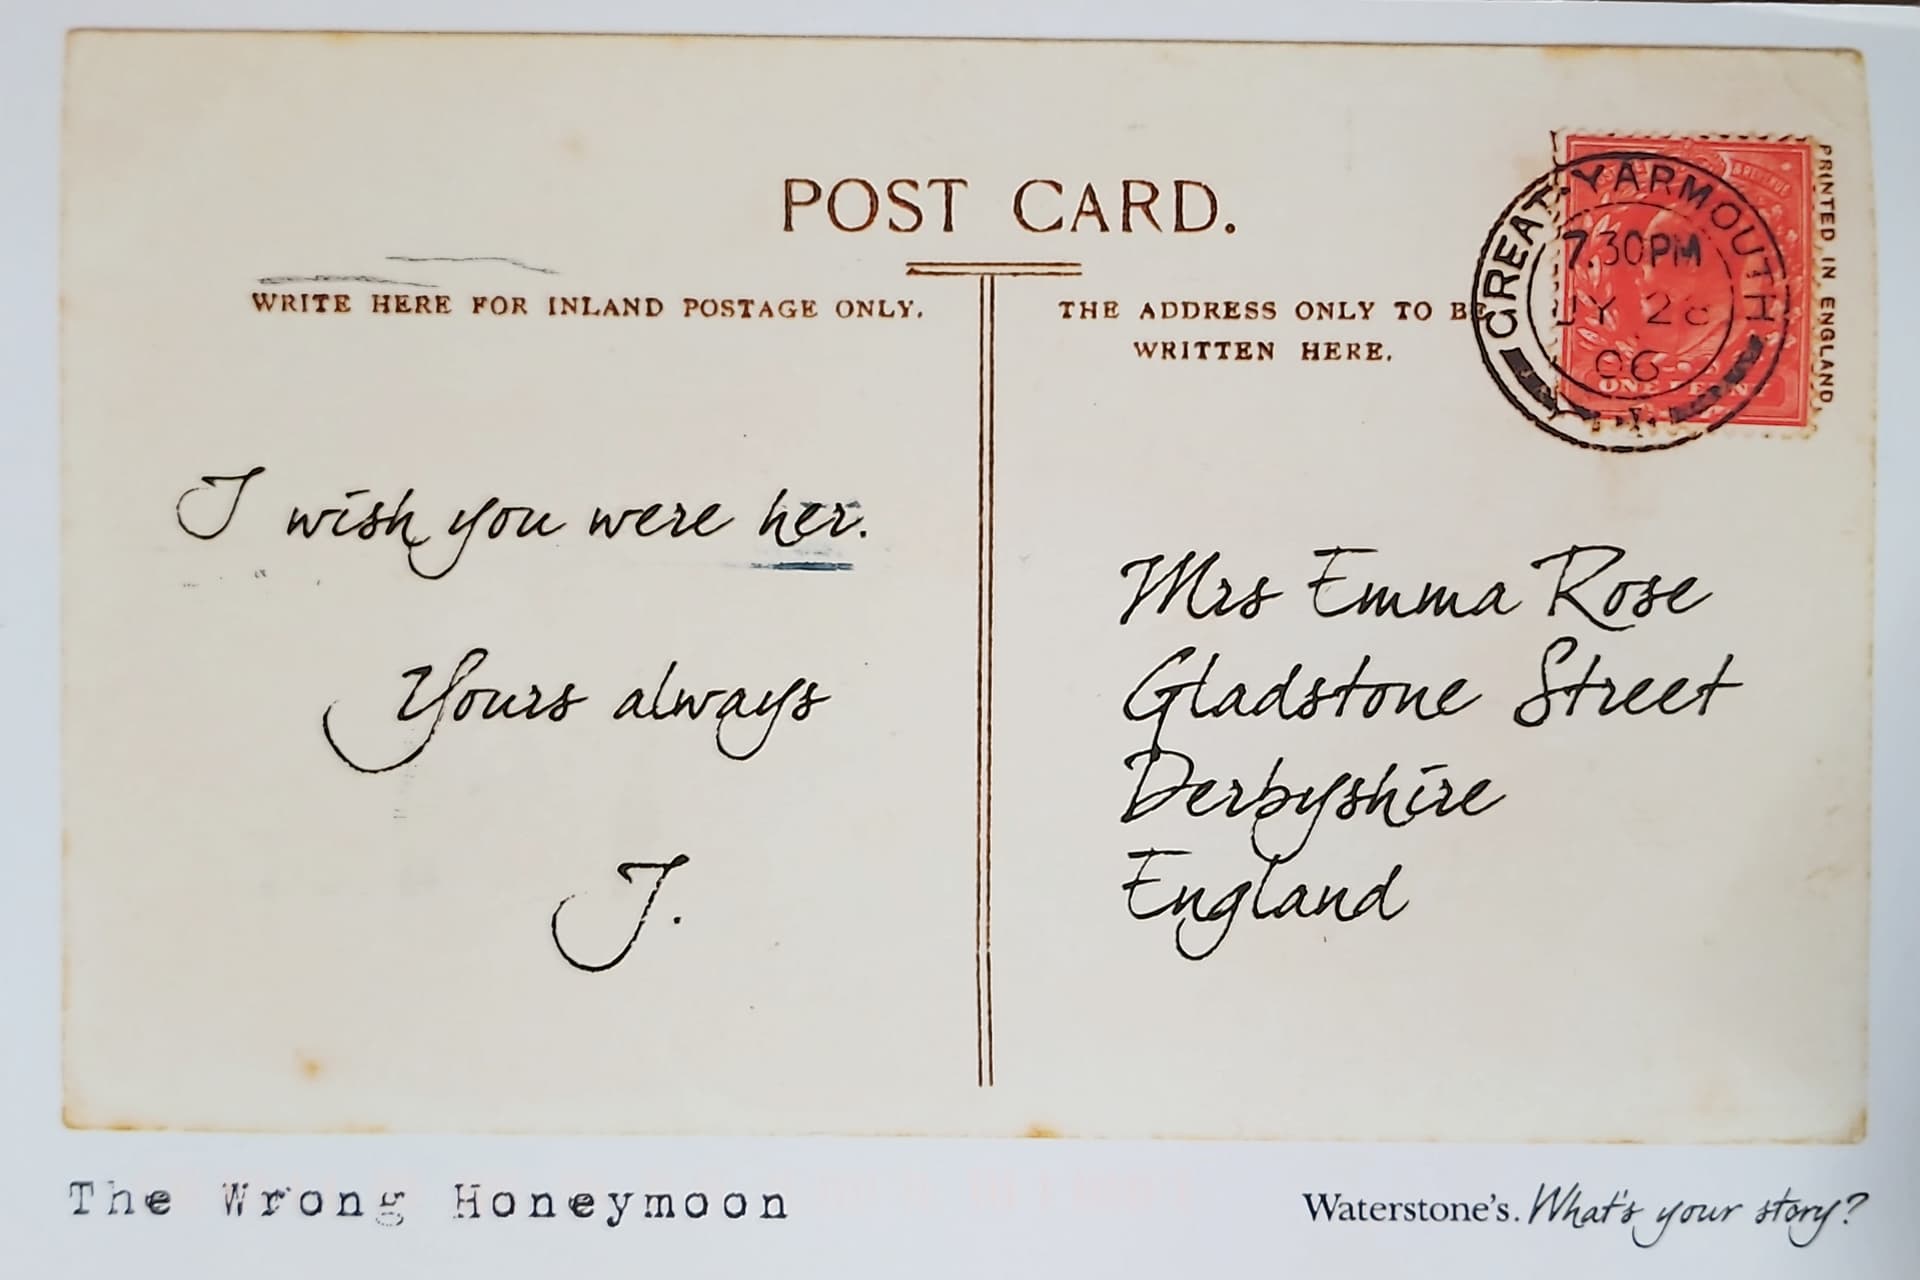 POST CARD.
WRITE HERE FOR INLAND POSTAGE ONLY.
THE ADDRESS ONLY TO BE
WRITTEN HERE.
PRINTED IN ENGLAND.
GREAT YARMOUTH
7.30PM
JY 28
06
ONE PENNY
I wish you were her.
Yours always
J.
Mrs Emma Rose
Gladstone Street
Derbyshire
England
The Wrong Honeymoon
Waterstone's. What's your story?